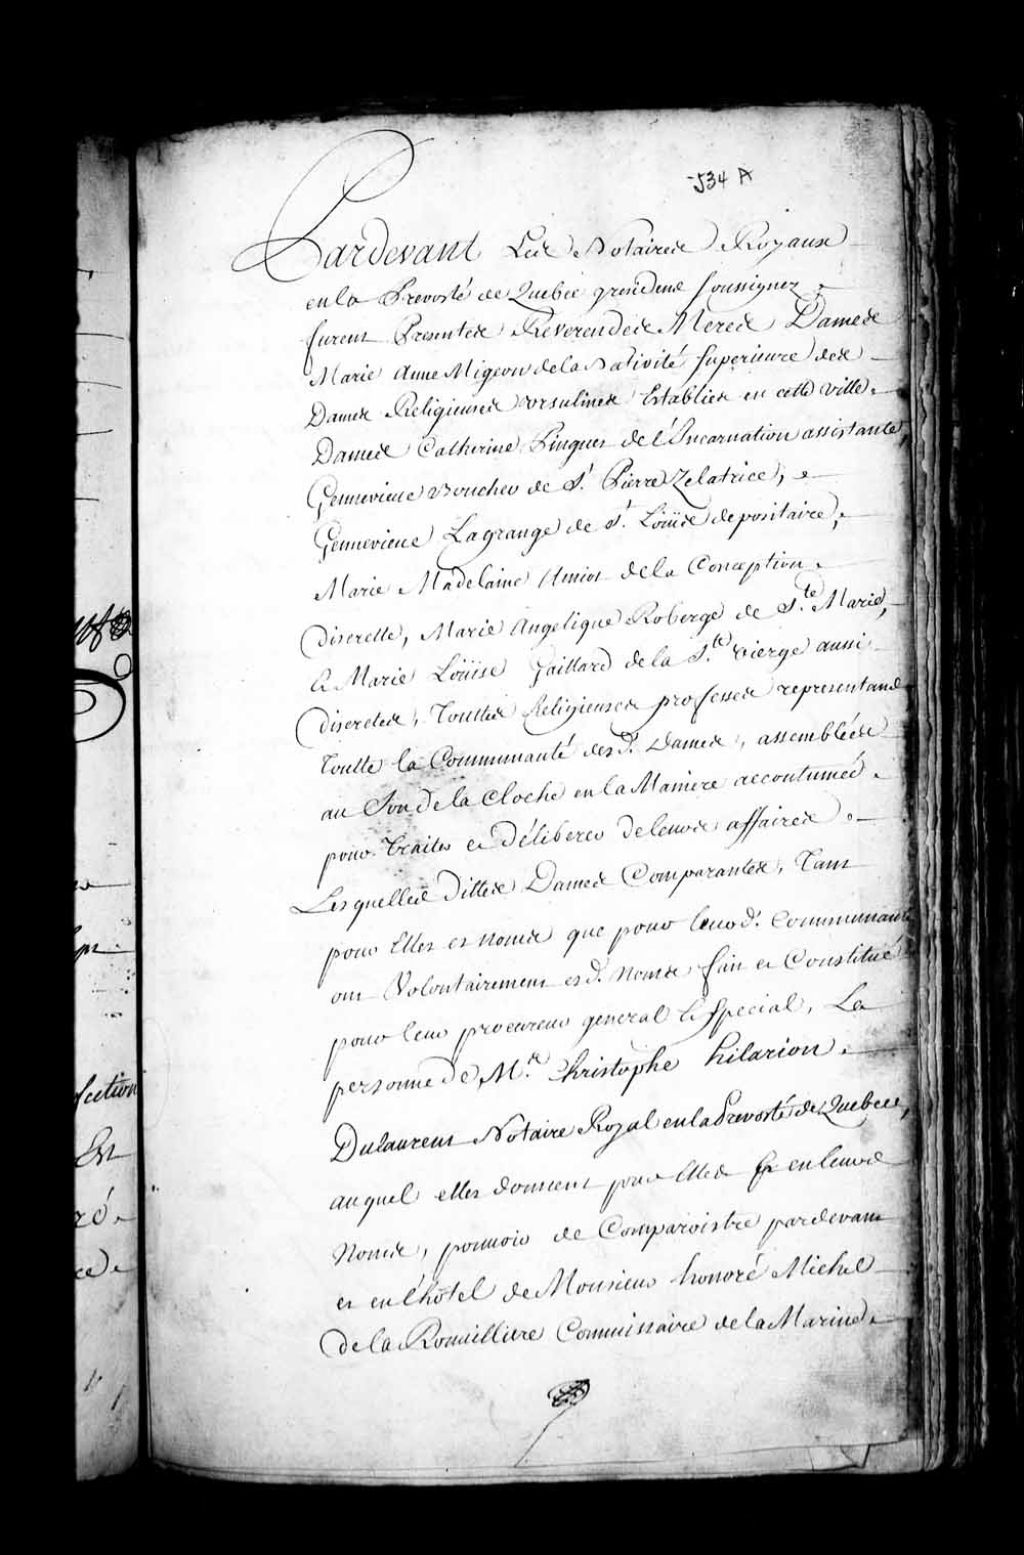 534 A
Pardevant Les Notaires Royaux
en la Prevosté de Quebec y residens soussignez
furent Presentes Reverendes Meres Dames
Marie Anne Migeon de la Nativité superieure des
Dames Religieuses ursulines Establies en cette ville
Dames Catherine Pinguet de l'Incarnation assistante,
Gennevieve Boucher de St. Pierre Zelatrice,
Gennevieve Lagrange de St. Loüis depositaire,
Marie Madelaine Amiot de la Conception
Discrette, Marie Angelique Roberge de Ste. Marie,
& Marie Loüise Gaillard de la Ste. vierge aussi
discretes, Touttes Religieuses professes representans
Toutte la Communauté desd. Dames, assemblées
au Son de la Cloche en la Maniere accoutumée
pour Traiter et Déliberer de leurs affaires
Lesquelles dittes Dames Comparantes, Tant
pour Elles es noms que pour leurd. Communauté
ont Volontairement esd. Noms fait et Constitué
pour leur procureur general & special, La
personne de Mr. Christophe hilarion
Dulaurent Notaire Royal en la Prevosté de Quebec,
auquel elles donnent pour Elles & en leurs
Noms, pouvoir de Comparoistre pardevant
et en l'hôtel de Monsieur honoré Michel
de la Rouvilliere Commissaire de la Marine
fection
Est